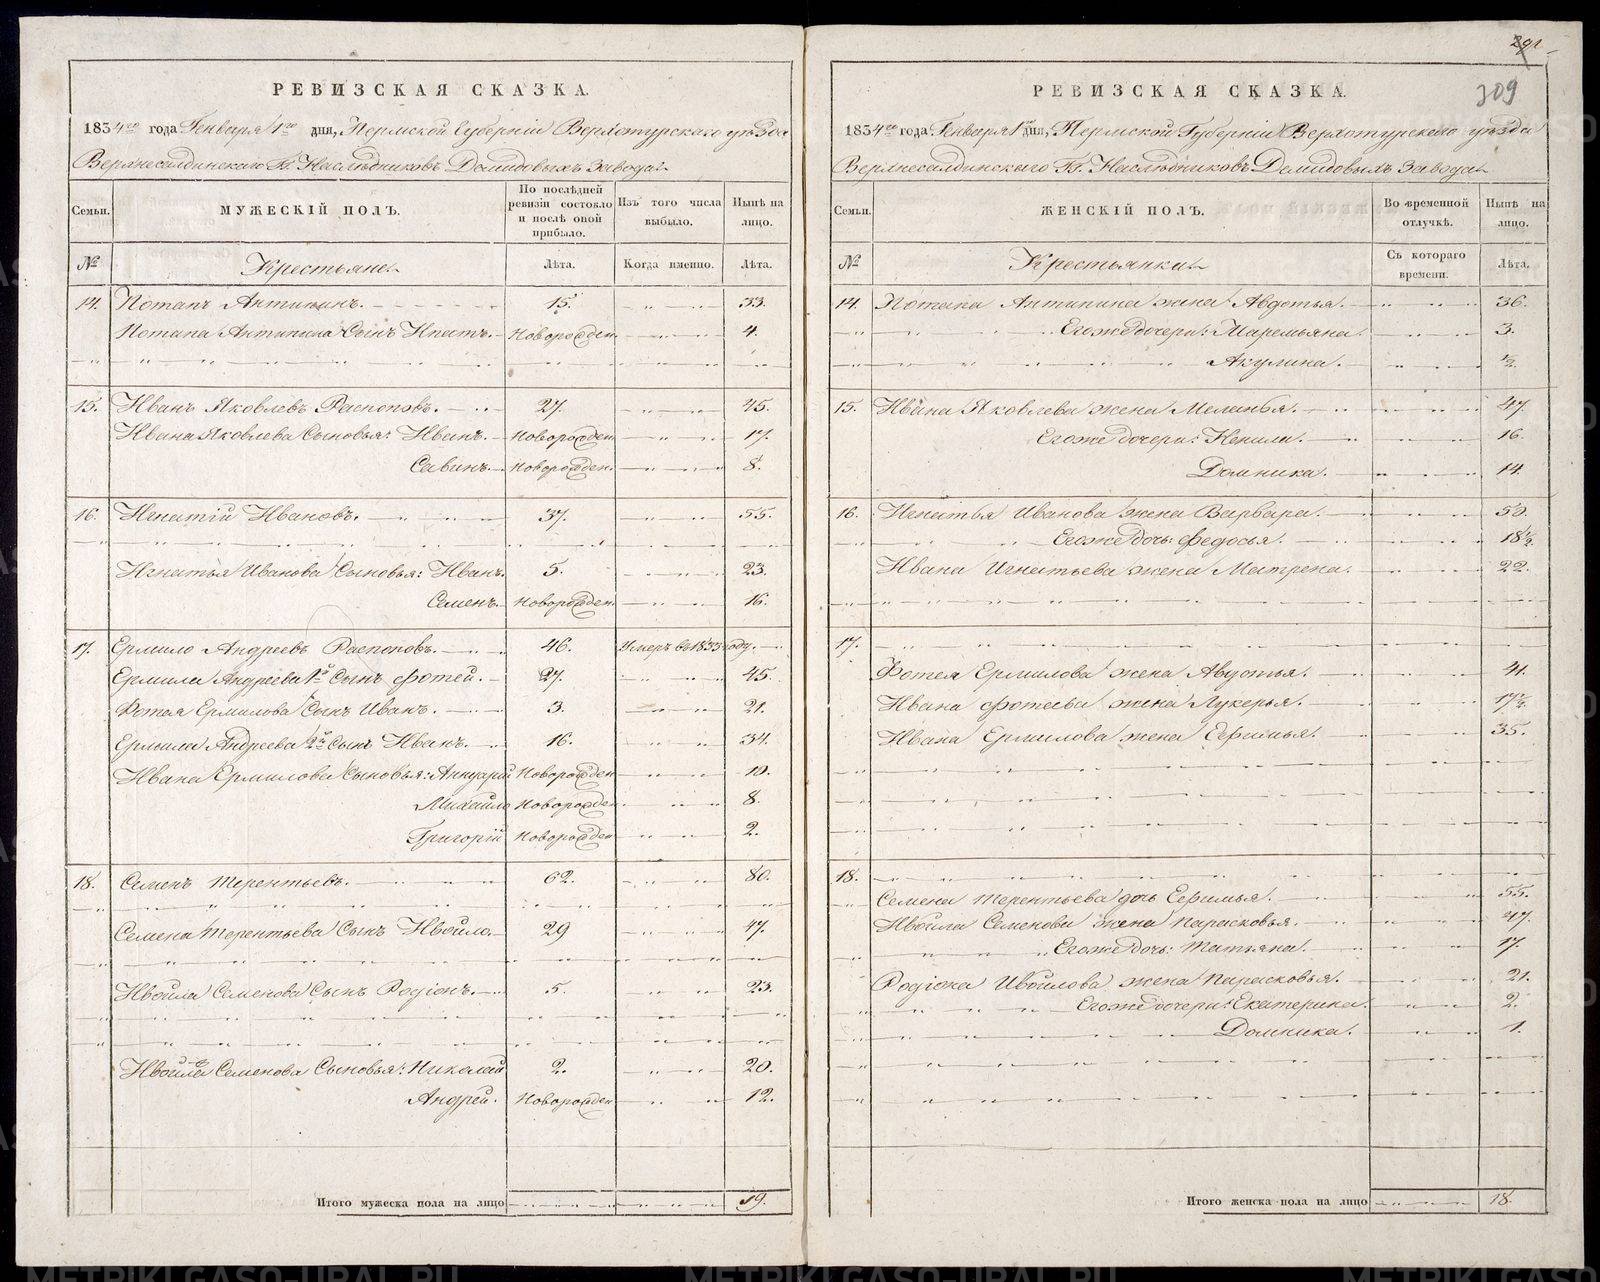 РЕВИЗСКАЯ СКАЗКА.
1834го года Генваря 1го дня, Пермской Губерніи Верхотурскаго уѣзда
Верхнесалдинскаго Гг. Наслѣдниковъ Демидовыхъ Завода
Семьи. МУЖЕСКІЙ ПОЛЪ. По послѣдней ревизіи состояло и послѣ оной прибыло. Изъ того числа выбыло. Нынѣ на лицо.
№ Крестьяне Лѣта. Когда именно. Лѣта.
14. Потапъ Антипинъ. 15. 33.
Потапа Антипина Сынъ Ипатъ. Новорожден. 4.
15. Иванъ Яковлевъ Распоповъ. 27. 45.
Ивана Яковлева Сыновья: Иванъ. Новорожден. 17.
Савинъ. Новорожден. 8.
16. Игнатій Ивановъ. 37. 55.
Игнатья Иванова Сыновья: Иванъ. 5. 23.
Семенъ. Новорожден. 16.
17. Ермило Андреевъ Распоповъ. 46. Умеръ въ 1833 году.
Ермила Андреева 1й Сынъ Фотей. 27. 45.
Фотея Ермилова Сынъ Иванъ. 3. 21.
Ермила Андреева 2й Сынъ Иванъ. 16. 34.
Ивана Ермилова Сыновья: Аннуарій Новорожден. 10.
Михайло Новорожден. 8.
Григорій Новорожден 2.
18. Семенъ Терентьевъ. 62. 80.
Семена Терентьева Сынъ Ивойло. 29 47.
Ивойла Семенова Сынъ Родіонъ. 5. 23.
Ивойла Семенова Сыновья: Николай 2. 20.
Андрей. Новорожден 12.
Итого мужеска пола на лицо 19.
291
309
РЕВИЗСКАЯ СКАЗКА.
1834го года Генваря 1го дня, Пермской Губерніи Верхотурскаго уѣзда
Верхнесалдинскаго Гг. Наслѣдниковъ Демидовыхъ Завода
Семьи. ЖЕНСКІЙ ПОЛЪ. Во временной отлучкѣ. Нынѣ на лицо.
№ Крестьянки Съ котораго времени. Лѣта.
14. Потапа Антипина жена Авдотья. 36.
Егоже дочери: Маремьяна. 3.
Акулина. ½.
15. Ивана Яковлева жена Меланья. 47.
Егоже дочери: Ненила. 16.
Домника. 14.
16. Игнатья Иванова жена Варвара. 50.
Егоже дочь: Федосья. 18½.
Ивана Игнатьева жена Матрена. 22.
17.
Фотея Ермилова жена Авдотья. 41.
Ивана Фотеева жена Лукерья. 17½.
Ивана Ермилова жена Ефимья. 35.
18.
Семена Терентьева дочь Ефимья. 55.
Ивойла Семенова жена Парасковья. 47.
Егоже дочь: Татьяна. 17.
Родіона Ивойлова жена Парасковья. 21.
Егоже дочери: Екатерина. 2.
Домника. 1.
Итого женска пола на лицо 18.
METRIKI.GASO-URAL.RU